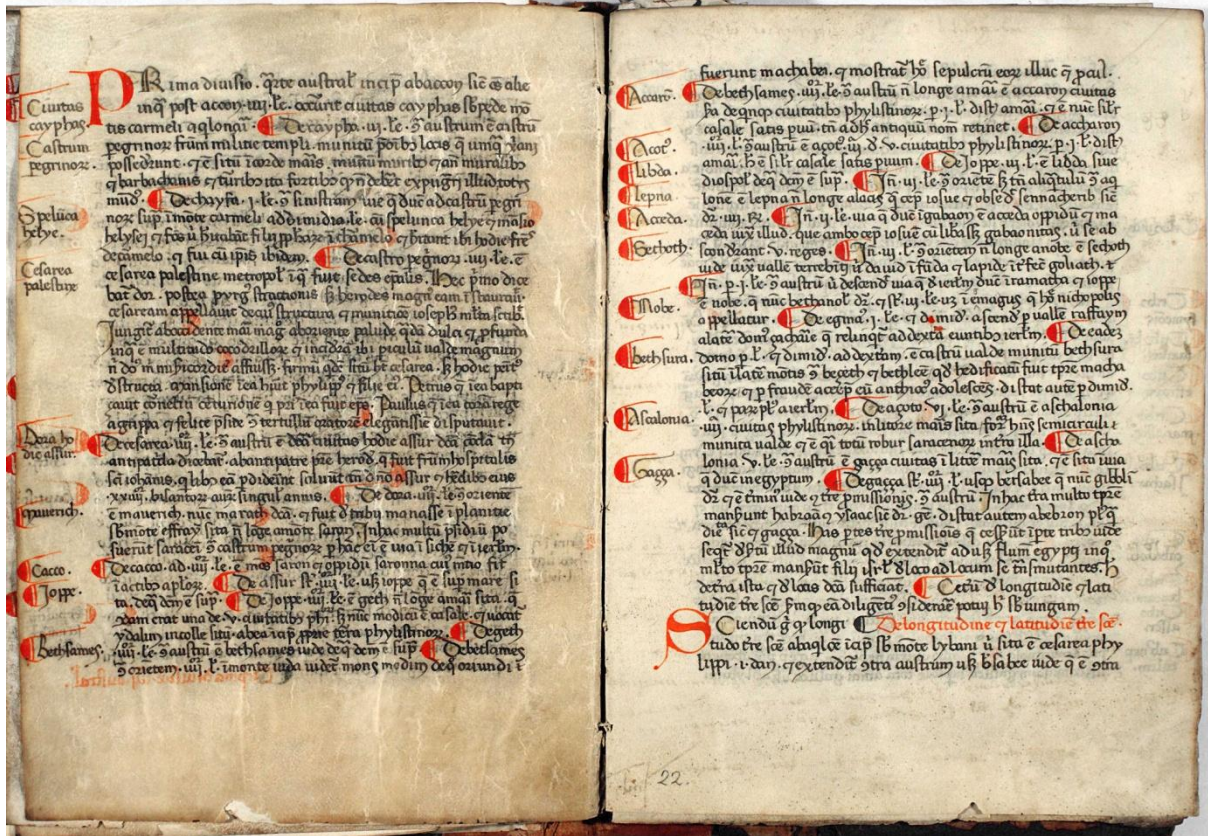 Ciuitas
cayphas.
Castrum
pegrinoꝝ.
Spelūca
helye.
Cesarea
palestine
Dora ho
die assur.
maverich.
Cacco.
Joppe.
Bethsames.
PRima diuisio. q̄rte austral incip̄ abaccon siē
inq̄ post accon .iiij. le. occurit ciuitas cayphas sb pede mō
tis carmeli a aq̄lonaī. De caypha .iij. le. ɔ̄ austrum ē castrū
pegrinoꝝ frūm militie templi. munitū
possedrunt. ⁊ ē sitū ī corde maris, munitū muris ⁊ an̄ muralib
⁊ barbachanis ⁊ turribꝫ ita fortibꝫ ꝙ n̄ debet expugri illud totꝰ
mūdꝰ. De chayfa .i. le. ɔ̄ sinistram uie q̄ duc̄ ad castrū pegri
noꝝ sup̄ ī mōte carmeli ad dimidia. le. spelunca helye ⁊ māsio
helysei ⁊ fōs ū hītabāt filij ꝓphaꝝ ī chamelo ⁊ hītant ibi hodie fr̄es
de carmelo. ⁊ fui cū ip̄is ibidem. De castro pegrioꝝ .iiij. le. ē
cesarea palestine metropol. ī q̄ fuit sedes ep̄alis. Hec p̄imo dice
bat̄ dor. postea pyrgꝰ stractonis sꝫ herodes magnꝰ eam īstaurās
cesaream appellauit de cuiꝰ structura ⁊ munitiōe ioseph mlta scribit.
Jungit̄ ab occidente mari magꝰ ab oriente palude q̄da dulci ⁊ ꝓfunda
in q̄ ē multitudo cocodrilloꝝ ⁊ incidrā ibi piculū ualde magnum
fuit hec cesarea. sꝫ hodie
destructa. mansionē ī ea hūit phylippꝰ ⁊ filie eiꝰ. Petrus ꝗ ī ea bapti
cauit corneliū cēturionē q̄ pri ī ea fuit ep̄s. Paulus ꝗ ī ea corā rege
agrippa ⁊ felice p̄side ɔ̄ tertullū oratorē elegātissie disputauit.
De cesarea .iij. le. ɔ̄ austrū ē dorā ciuitas hodie assur
antipatre ꝑre herod. q̄ fuit frūm hospitalis
sc̄i iohānis. ꝗbꝫ ea pdident soluit̄ dn̄o assur ⁊ hēdibꝫ eiꝰ
.xxviij. bisantoꝝ auri singulꝰ annis. De dora .iiij. le. ɔ̄ oriente
ē mauerich. nūc marath dcā. ⁊ fuit d̄ tribu manasse ī planitie
sb mōte effray sita n̄ loge a mōte saron. In hac multū ꝓsidiū po
fuerūt saraceī ɔ̄ castrum pegrioꝝ p̄ hāc ē uia ī sichē ⁊ ī ierlm̄.
De cacco ad .iiij. le. ē mōs saron ⁊ oppidū saronna cui mtio fit
ī actibꝫ aploꝝ. De assur st̄ .iiij. le. usꝫ ioppe q̄ ē sup̄ mare si
ta. de q̄ dcm̄ ē sup̄. De Joppe .iiij. le. ē geth n̄ lōge a mari sita. q̄
qdam erat una de .v. ciuitatibꝫ phil. sꝫ nūc modicū ē casale. ⁊ uocat̄
ydalim in colle sitū. ab ea īcip̄ ꝓprie terra phylistinoꝝ. De geth
.iiij. le. ɔ̄ austrū ē bethsames uide de q̄ dcm̄ ē sup̄. De bethsames
ɔ̄ orietem .iiij. l. ī monte iuda uidet̄ mons modin de q̄ oriundi ī
Accarō.
Acotꝰ.
Libda.
Lepna.
Acceda.
Sechoth.
Nobe.
bethsura.
Ascalonia.
Gaçça.
fuerunt machabei. ⁊ mostrat̄ hō sepulcrū eoꝝ illuc q̄ ꝓcul.
De bethsames .iiij. le. ɔ̄ austrū n̄ longe a mari ē accaron ciuitas
.p. i. l. dist̄ a mari. ⁊ ē nūc silr̄
casale satis puū. tn̄ adhꝰ antiquū nom̄ retinet. De accharon
.iiij. l. ɔ̄ austrū ē açotꝰ .iij. d̄ .v. ciuitatibꝫ phylistinoꝝ. p. i. l. dist̄
a mari. h̄ ē silr̄ casale satis puum. De Joppe .iij. l. ē libda siue
diospol de q̄ dcm̄ ē sup̄. In̄ .iij. le. ɔ̄ oriētē sꝫ tn̄ aliq̄tulū ɔ̄ aq̄
lone ē lepna n̄ longe a lacis q̄ cep̄ iosue ⁊ obsed̄ sennacherib siē
dr̄ .iiij. R̄. In̄ .ij. le. uia q̄ duc̄ ī gabaon ē acceda oppidū ⁊ ma
ceda iux illud. que ambo cep̄ iosue cū libass gabaonitas ū se ab
scondrant .v. reges. In̄ .ij. l. ɔ̄ orietem n̄ longe a nobe ē sechoth
uide iux uallē terrebīti ū dauid ī fūda ⁊ lapide īt̄fec̄ goliath. ⁊
In̄ .p. i. le. ɔ̄ austrū ū descend̄ uia q̄ d̄ ierlm̄ duc̄ ī ramatha ⁊ ioppē
ē nobe. q̄ nūc bethanobꝰ dr̄. ⁊ st̄ .iij. le. uꝫ ī emagus q̄ hō nichopolis
appellatur. De egmaꝰ .i. le. ⁊ dimid. ascend̄ p uallē raffaym
a late domꝰ çacharie q̄ relinq̄t̄ ad dextā euntibꝫ ierlm̄. De eadeꝫ
domo p l. ⁊ dimid. ad dextam. ē castrū ualde munitū bethsura
sitū ī late mōtis ɔ̄ beçech ⁊ bethleē qd̄ hedificatū fuit tp̄re macha
beoꝝ. ⁊ p fraudē accep̄ eū anthiocꝰ adolescēs. distat autē p dimid.
l. ⁊ parꝫ pl. a ierlm̄. De açoto .vi. le. ɔ̄ austrū ē aschalonia
.iiij. ciuitas phylistinoꝝ. in litore maris sita formā hn̄s semicirculi ⁊
munita ualde ⁊ ē q̄i totū robur saracenoꝝ intra illa. De ascha
lonia .v. le. ɔ̄ austrū ē gaçça ciuitas ī litē maris sita. ⁊ ē sita ī uia
q̄ duc̄ in egyptum. De gaçça st̄ .iiij. l. usqꝫ bersabee q̄ nūc giblin
dr̄ ⁊ ē t̄minꝰ iude ⁊ t̄re ꝓmissionis ɔ̄ austrū. In hac t̄ra multo tp̄re
mansūnt habraā ⁊ ysaac siē dr̄ .ge. distat autem ab ebron
⁊ gaçça. Has partes t̄re ꝓmissiōis q̄ cesserūt ī parte tribꝰ iude
seqt̄ dsertū illud magnū qd̄ extendit̄ ad usꝫ flum̄ egypti in q̄
mlto tp̄re mansūt filij isrl. d̄ loco ad locum se trāsmutantes. h̄
de t̄ra ista ⁊ d̄ locis dcā sufficiāt. Ceterū d̄ longitudīe ⁊ lati
tudīe t̄re scē p̄m q̄ ea diligent̄ ɔsiderare potui h̄ sb iungam.
SCiendū ḡ ꝙ longi De longitudine ⁊ latitudiē t̄re scē.
tudo t̄re scē ab aq̄lōe īcip̄ sb mōte lybani ū sita ē cesarea phy
lippi .i. dan. ⁊ extendit̄ ɔtra austrum usꝫ bersabee uide q̄ ē ɔtra
22.